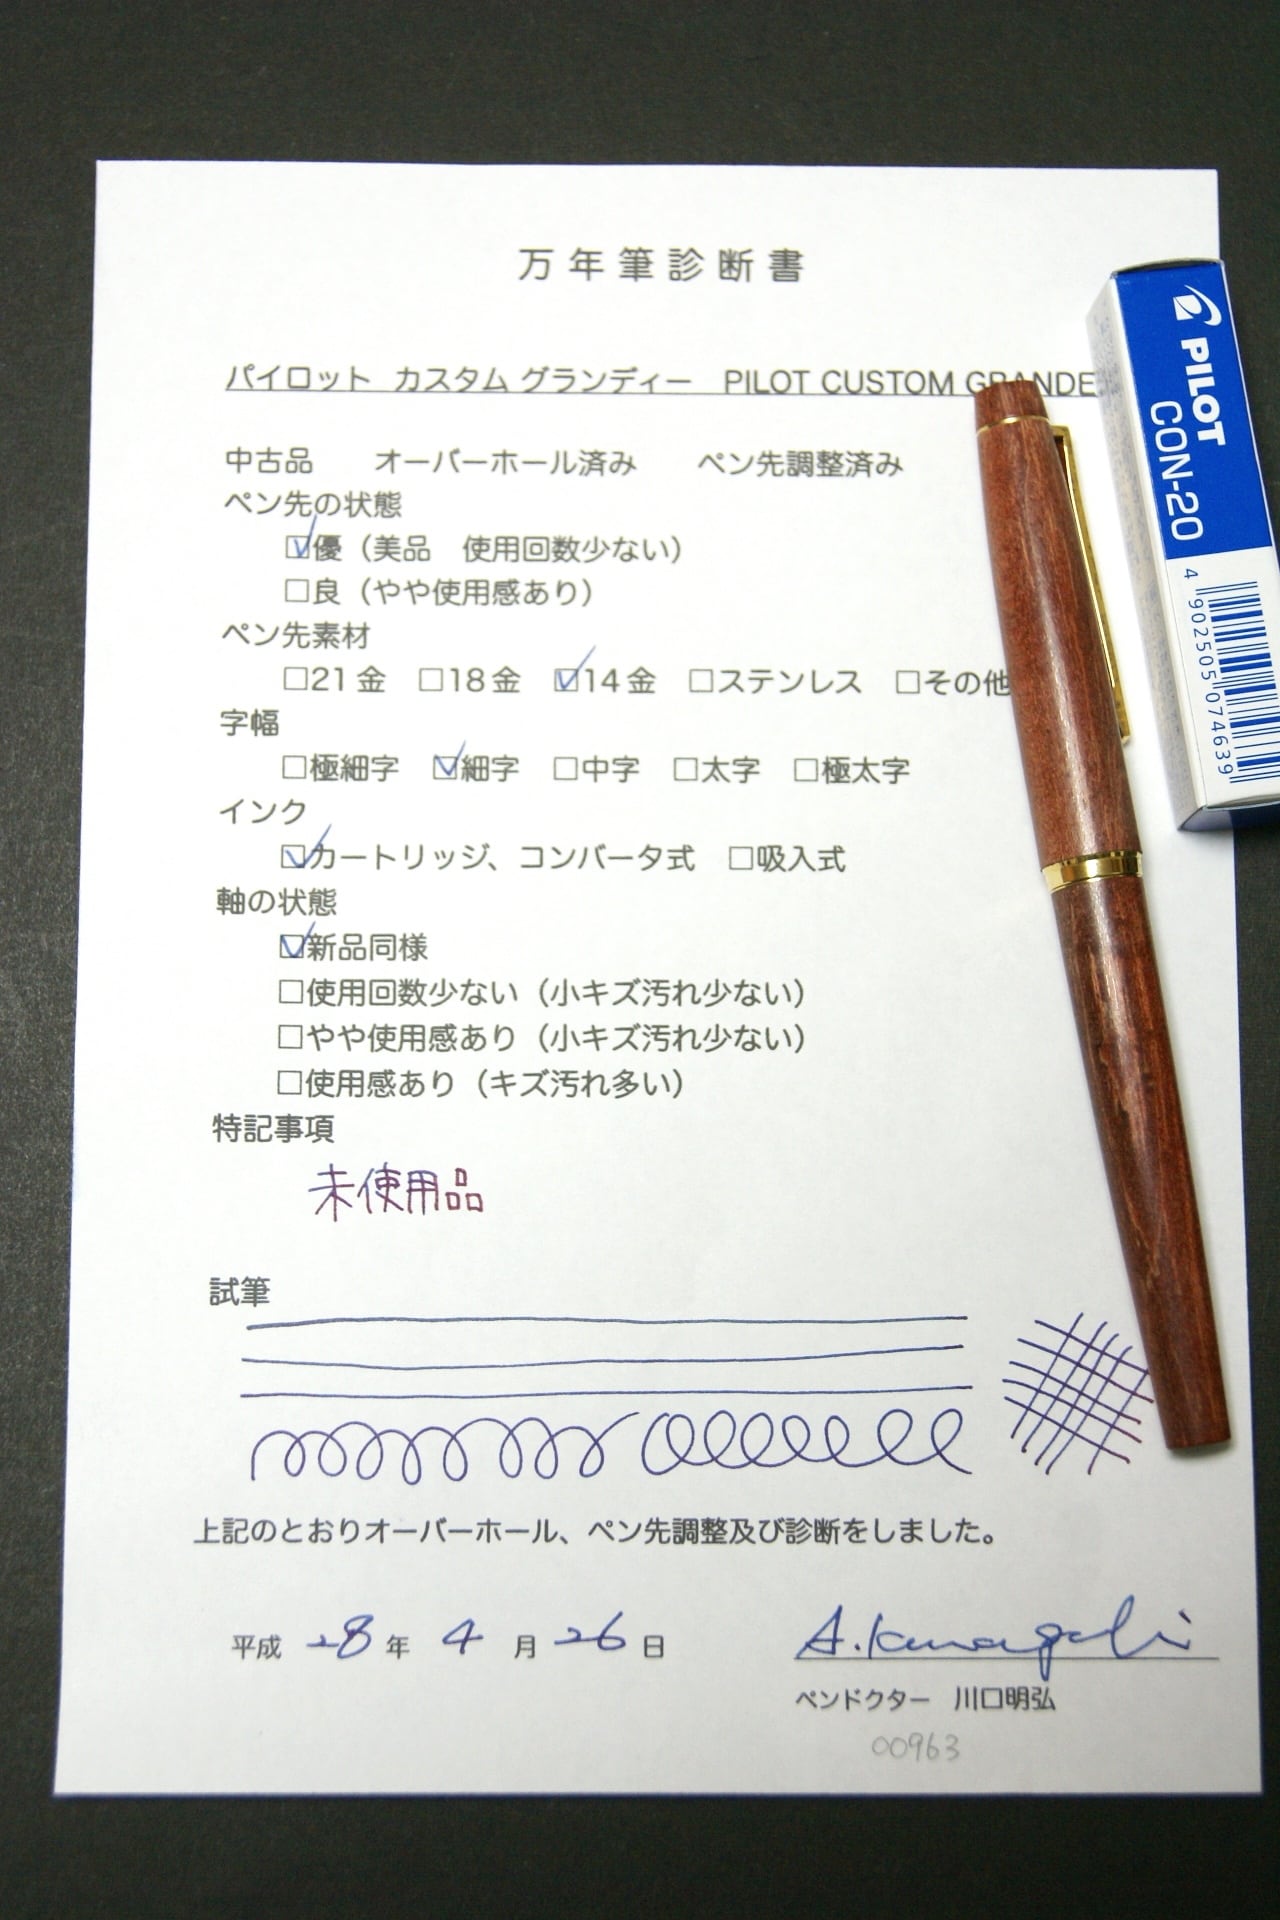 万年筆診断書
パイロット カスタム グランディー PILOT CUSTOM GRANDE
中古品 オーバーホール済み ペン先調整済み
ペン先の状態
☑優（美品 使用回数少ない）
□良（やや使用感あり）
ペン先素材
□21金 □18金 ☑14金 □ステンレス □その他
字幅
□極細字 ☑細字 □中字 □太字 □極太字
インク
☑カートリッジ、コンバータ式 □吸入式
軸の状態
☑新品同様
□使用回数少ない（小キズ汚れ少ない）
□やや使用感あり（小キズ汚れ少ない）
□使用感あり（キズ汚れ多い）
特記事項
未使用品
試筆
上記のとおりオーバーホール、ペン先調整及び診断をしました。
平成 28 年 4 月 26 日
A. Kawaguchi
ペンドクター 川口明弘
00963
PILOT
CON-20
4 902505 074639